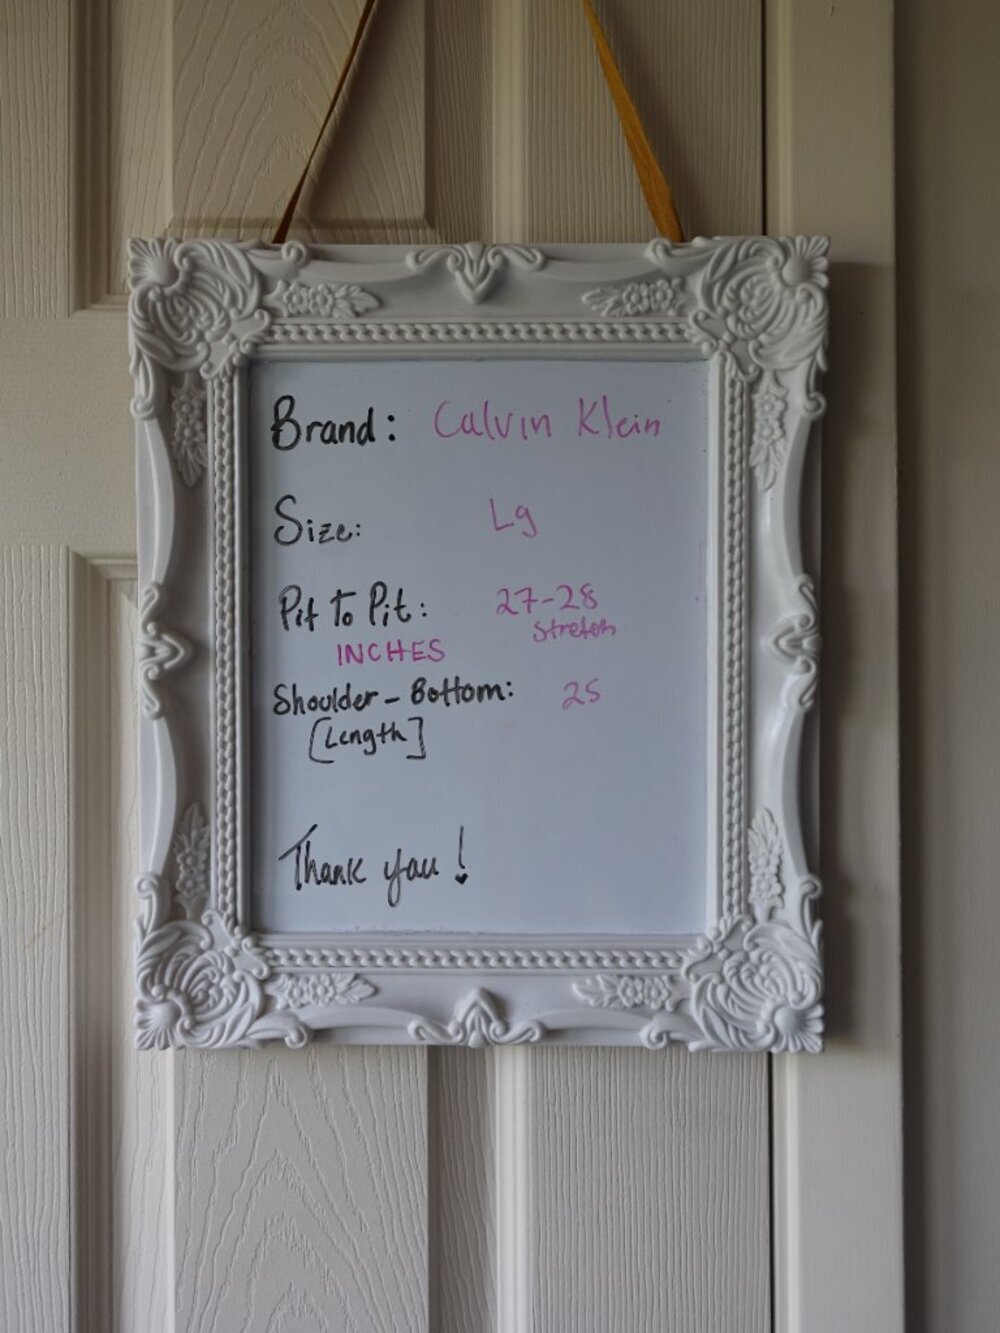 Brand: Calvin Klein
Size: Lg
Pit To Pit: 27-28
stretch
INCHES
Shoulder - Bottom: 25
[Length]
Thank you!